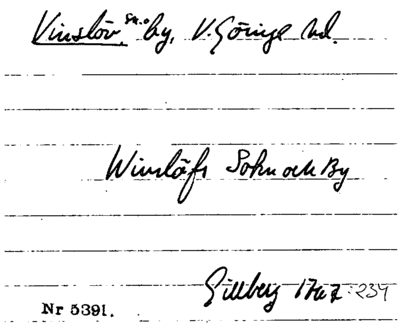 Vinslöv, sn. o by, V. Göinge hd.
Winslöfs Sokn och By
Gillberg 1767:234
Nr 5391.